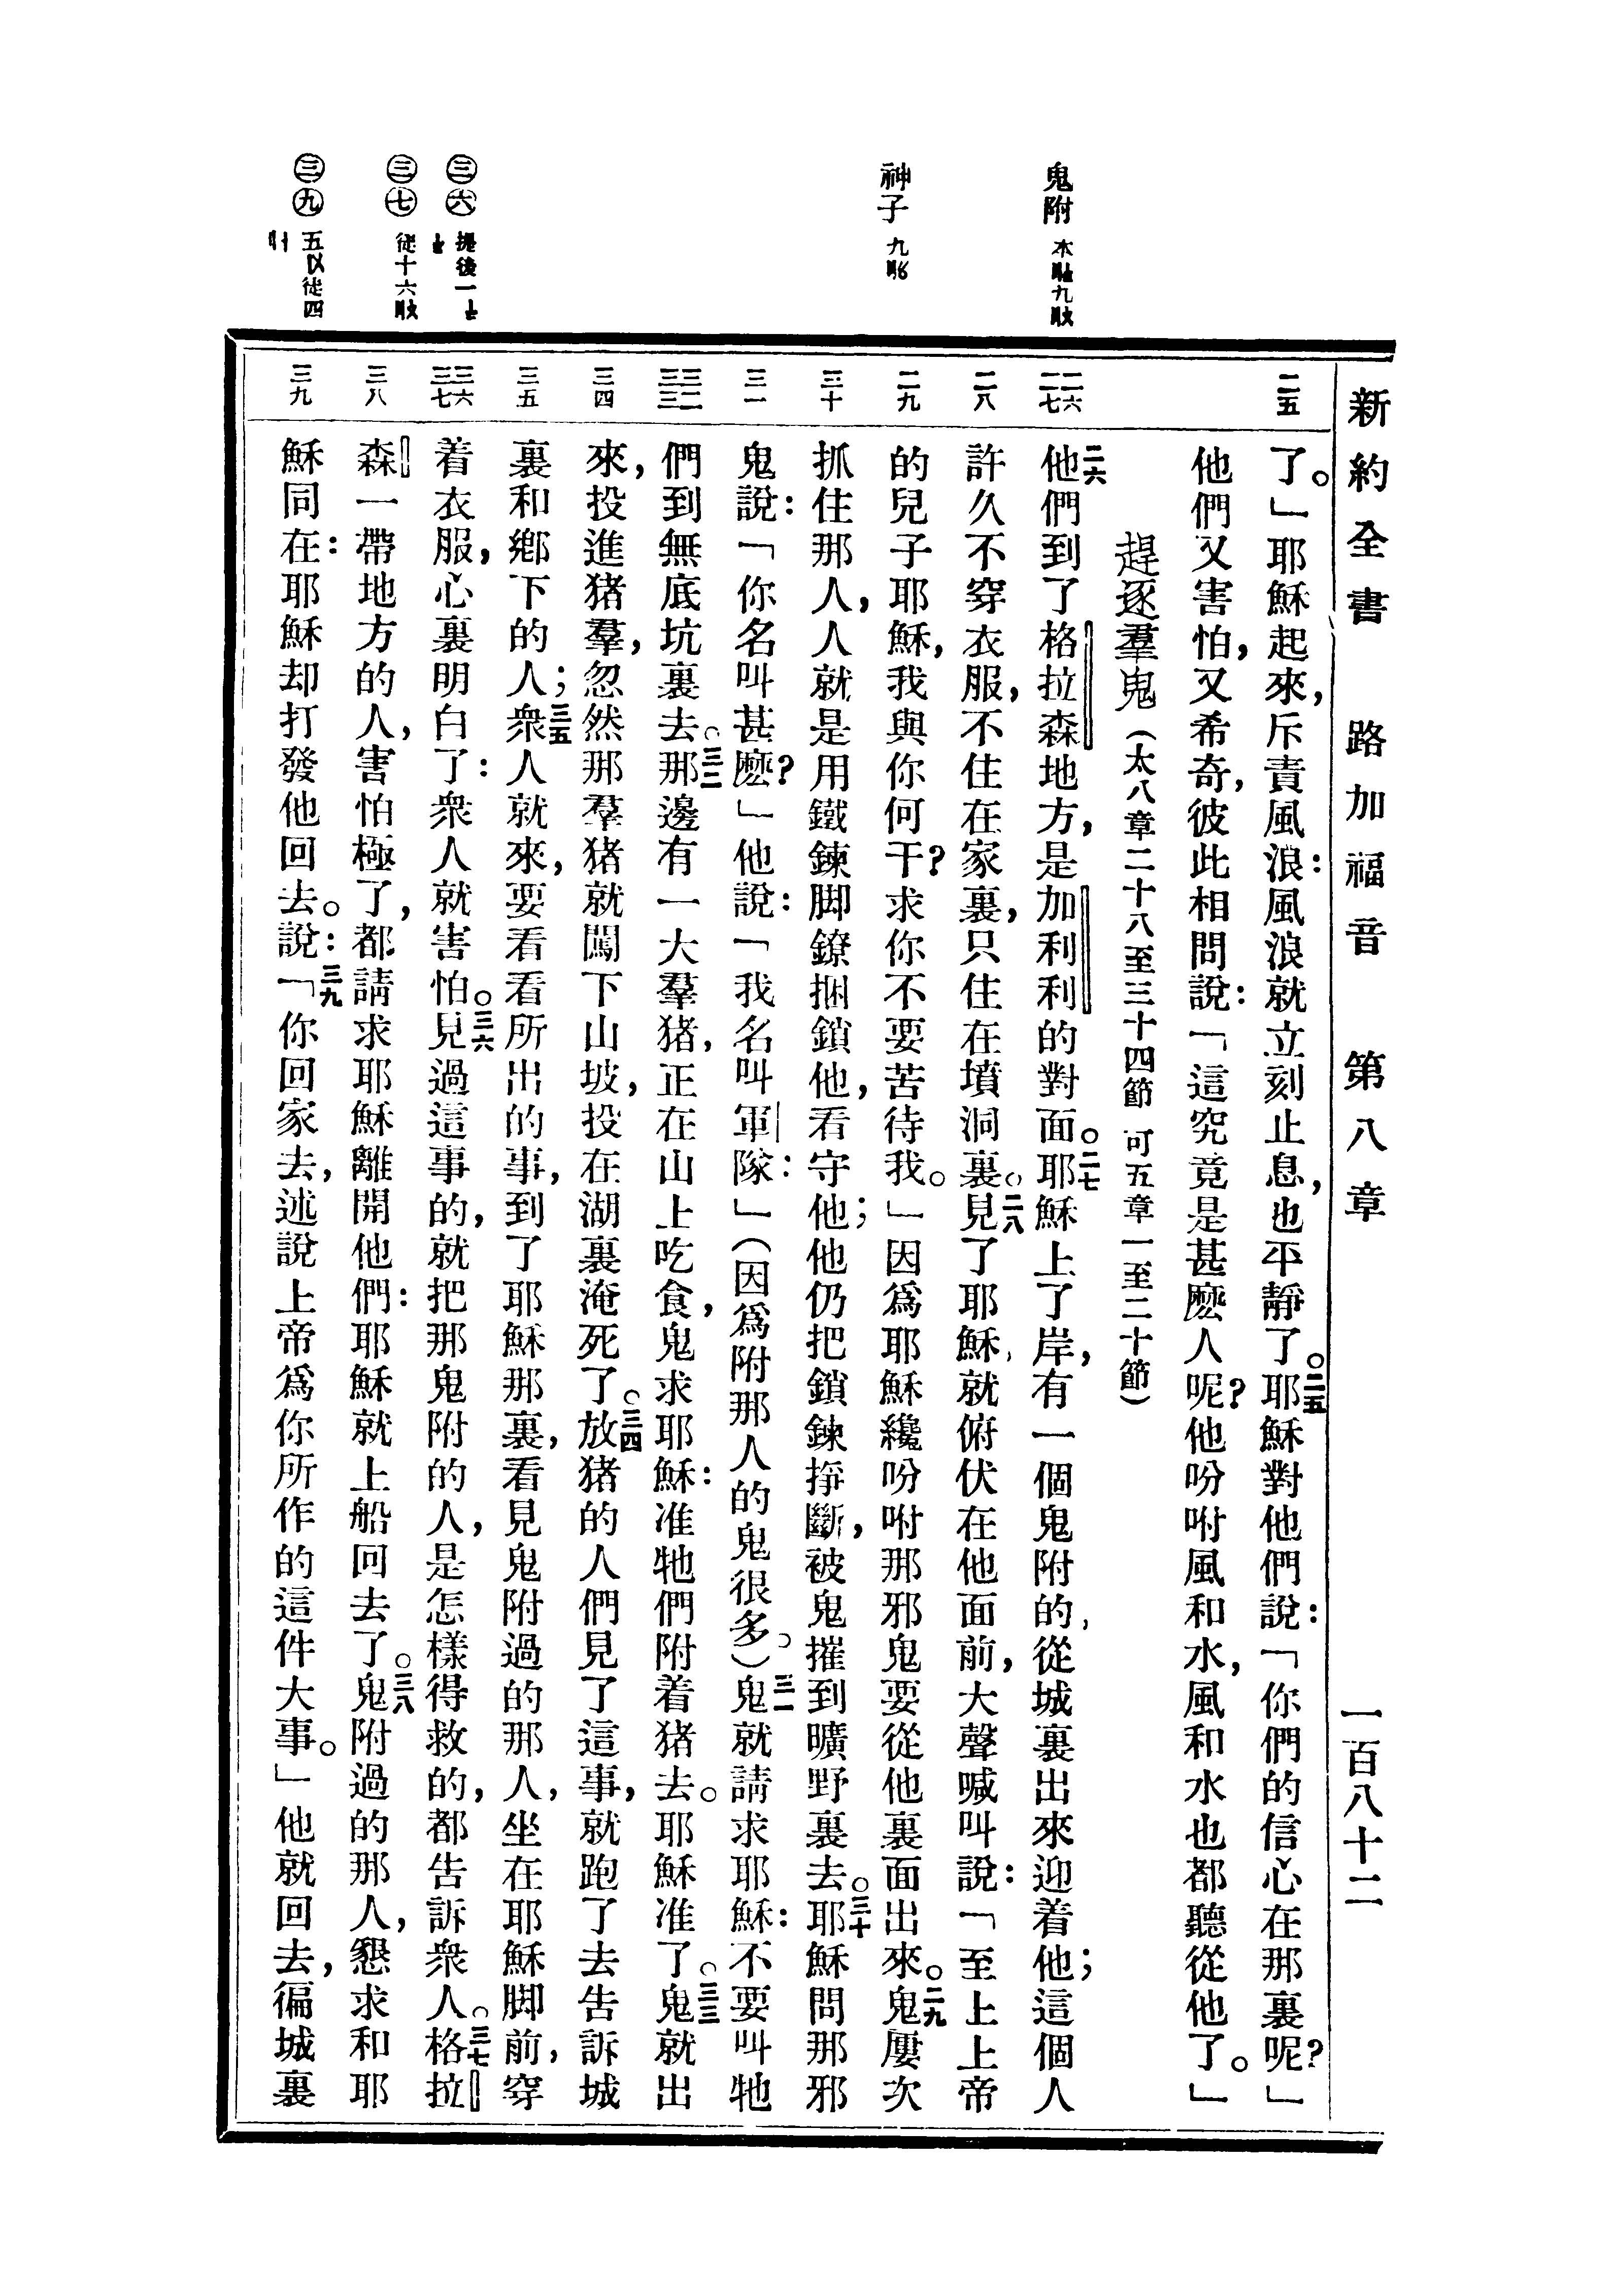 新約全書 路加福音 第八章 一百八十二
鬼附
神子
㊂㊅
㊂㊆ 徒十六
㊂㊈ 五 徒四
二五
二六
二七
二八
二九
三十
三一
三二
三三
三四
三五
三六
三七
三八
三九
了。」耶穌起來,斥責風浪:風浪就立刻止息,也平靜了。二五耶穌對他們說:「你們的信心在那裏呢?」
他們又害怕,又希奇,彼此相問說:「這究竟是甚麽人呢?他吩咐風和水,風和水也都聽從他了。」
趕逐羣鬼(太八章二十八至三十四節 可五章一至二十節)
二六他們到了格拉森地方,是加利利的對面。二七耶穌上了岸,有一個鬼附的,從城裏出來迎着他;這個人
許久不穿衣服,不住在家裏,只住在墳洞裏。二八見了耶穌,就俯伏在他面前,大聲喊叫說:「至上上帝
的兒子耶穌,我與你何干?求你不要苦待我。」因爲耶穌纔吩咐那邪鬼要從他裏面出來。二九鬼屢次
抓住那人,人就是用鐵鍊脚鐐捆鎖他,看守他;他仍把鎖鍊掙斷,被鬼摧到曠野裏去。三十耶穌問那邪
鬼說:「你名叫甚麽?」他說:「我名叫軍隊:」(因爲附那人的鬼很多。)三一鬼就請求耶穌:不要叫牠
們到無底坑裏去。三二那邊有一大羣猪,正在山上吃食,鬼求耶穌:准牠們附着猪去。耶穌准了。三三鬼就出
來,投進猪羣,忽然那羣猪就闖下山坡,投在湖裏淹死了。三四放猪的人們見了這事,就跑了去告訴城
裏和鄉下的人;三五衆人就來,要看看所出的事,到了耶穌那裏,看見鬼附過的那人,坐在耶穌脚前,穿
着衣服,心裏明白了:衆人就害怕。三六見過這事的,就把那鬼附的人,是怎樣得救的,都告訴衆人。三七格拉
森一帶地方的人,害怕極了,都請求耶穌離開他們:耶穌就上船回去了。三八鬼附過的那人,懇求和耶
穌同在:耶穌却打發他回去。說:三九「你回家去,述說上帝爲你所作的這件大事。」他就回去,徧城裏